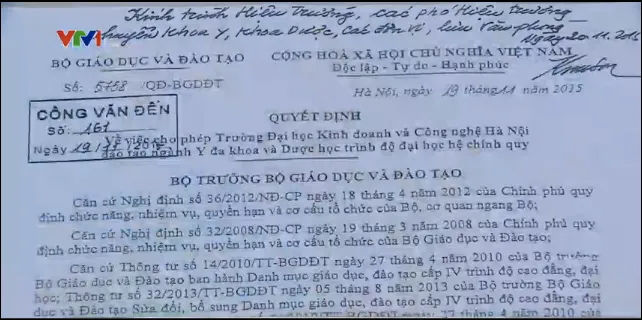 Kính trình Hiệu Trưởng, các phó Hiệu trưởng
VTV1
chuyển Khoa Y, Khoa Dược, các đơn vị, lưu Văn phòng
BỘ GIÁO DỤC VÀ ĐÀO TẠO
CỘNG HOÀ XÃ HỘI CHỦ NGHĨA VIỆT NAM
Độc lập - Tự do - Hạnh phúc
Số: 5158 /QĐ-BGDĐT
Hà Nội, ngày 19 tháng 11 năm 2015
CÔNG VĂN ĐẾN
Số: 161
Ngày 19/11/2015
QUYẾT ĐỊNH
Về việc cho phép Trường Đại học Kinh doanh và Công nghệ Hà Nội
đào tạo ngành Y đa khoa và Dược học trình độ đại học hệ chính quy
BỘ TRƯỞNG BỘ GIÁO DỤC VÀ ĐÀO TẠO
Căn cứ Nghị định số 36/2012/NĐ-CP ngày 18 tháng 4 năm 2012 của Chính phủ quy
định chức năng, nhiệm vụ, quyền hạn và cơ cấu tổ chức của Bộ, cơ quan ngang Bộ;
Căn cứ Nghị định số 32/2008/NĐ-CP ngày 19 tháng 3 năm 2008 của Chính phủ quy
định chức năng, nhiệm vụ, quyền hạn và cơ cấu tổ chức của Bộ Giáo dục và Đào tạo;
Căn cứ Thông tư số 14/2010/TT-BGDĐT ngày 27 tháng 4 năm 2010 của Bộ trưởng
Bộ Giáo dục và Đào tạo ban hành Danh mục giáo dục, đào tạo cấp IV trình độ cao đẳng, đại
học; Thông tư số 32/2013/TT-BGDĐT ngày 05 tháng 8 năm 2013 của Bộ trưởng Bộ Giáo
dục và Đào tạo Sửa đổi, bổ sung Danh mục giáo dục, đào tạo cấp IV trình độ cao đẳng, đại
ngày 27 tháng 4 năm 2010 của